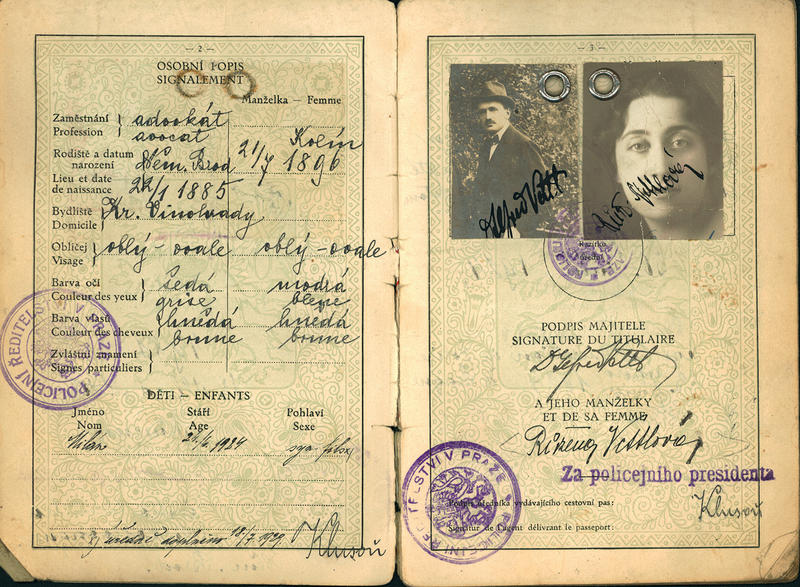 — 2 —
OSOBNÍ POPIS
SIGNALEMENT
Manželka – Femme
Zaměstnání
Profession
advokát
avocat
Rodiště a datum
narození
Lieu et date
de naissance
Něm. Brod
22/1 1885
Kolín
21/7 1896
Bydliště
Domicile
Kr. Vinohrady
Obličej
Visage
oblý - ovale oblý - ovale
Barva očí
Couleur des yeux
šedá modrá
grise bleue
Barva vlasů
Couleur des cheveux
hnědá hnědá
brune brune
Zvláštní znamení
Signes particuliers
POLICEJNÍ ŘEDITELSTVÍ V PRAZE
DĚTI – ENFANTS
Jméno Stáří Pohlaví
Nom Age Sexe
Milan 1924 syn
doplněno 18/7 1929 Klusoň
— 3 —
Alfred Vettl
Růž. Vettlová
Razítko
úřední
PODPIS MAJITELE
SIGNATURE DU TITULAIRE
Dr Alfred Vettl
A JEHO MANŽELKY
ET DE SA FEMME
Růžena Vettlová
Za policejního presidenta
Podpis úředníka vydávajícího cestovní pas:
Klusoň
Signatur de l'agent délivrant le passeport:
POLICEJNÍ ŘEDITELSTVÍ V PRAZE